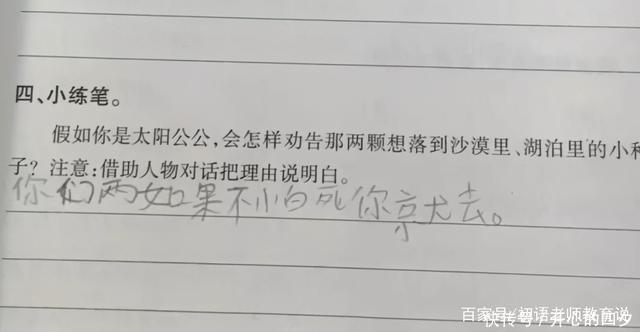 四、小练笔。
假如你是太阳公公,会怎样劝告那两颗想落到沙漠里、湖泊里的小种
子?注意:借助人物对话把理由说明白。
你们两如果不怕死你就去。
百家号/初语老师教育说
快传号/开心的四夕